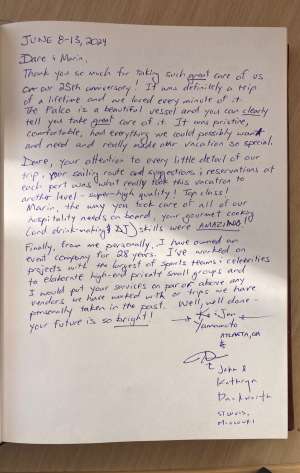 JUNE 8-13, 2024
Dare & Marin,
Thank you so much for taking such great care of us
on our 25th anniversary! It was definitely a trip
of a lifetime and we loved every minute of it.
The Falco is a beautiful vessel and you can clearly
tell you take great care of it. It was pristine,
comfortable, had everything we could possibly want
and need and really made our vacation so special.
Dare, your attention to every little detail of our
trip, your sailing route and suggestions & reservations at
each port was what really took this vacation to
another level - super high quality! Top class!
Marin, the way you took care of all of our
hospitality needs on board, your gourmet cooking
(and drink-making & DJ) skills were AMAZING!
Finally, from me personally, I have owned an
event company for 28 years. I've worked on
projects with the largest of sports teams & celebrities
to elaborate high-end private small groups and
I would put your services on par or above any
vendors we have worked with or trips we have
personally taken in the past. Well, well done -
your future is so bright!
Jen
Yamamoto
ATLANTA, GA
&
John &
Kathryn
ST LOUIS,
MISSOURI